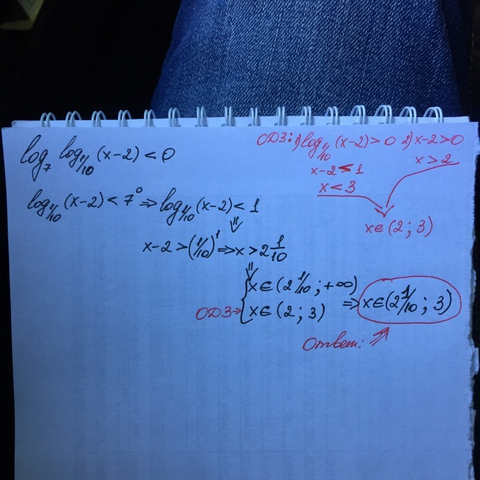 log₇ log₁/₁₀ (x-2) < 0
ОДЗ: 1) log₁/₁₀ (x-2) > 0 2) x-2 > 0
x-2 < 1
x > 2
x < 3
x ∈ (2; 3)
log₁/₁₀ (x-2) < 7⁰ ⇒ log₁/₁₀ (x-2) < 1
⇓
x-2 > (1/10)¹ ⇒ x > 2 1/10
⇓
{ x ∈ (2 1/10; +∞)
ОДЗ → { x ∈ (2; 3) ⇒ x ∈ (2 1/10; 3)
Ответ: ⇗